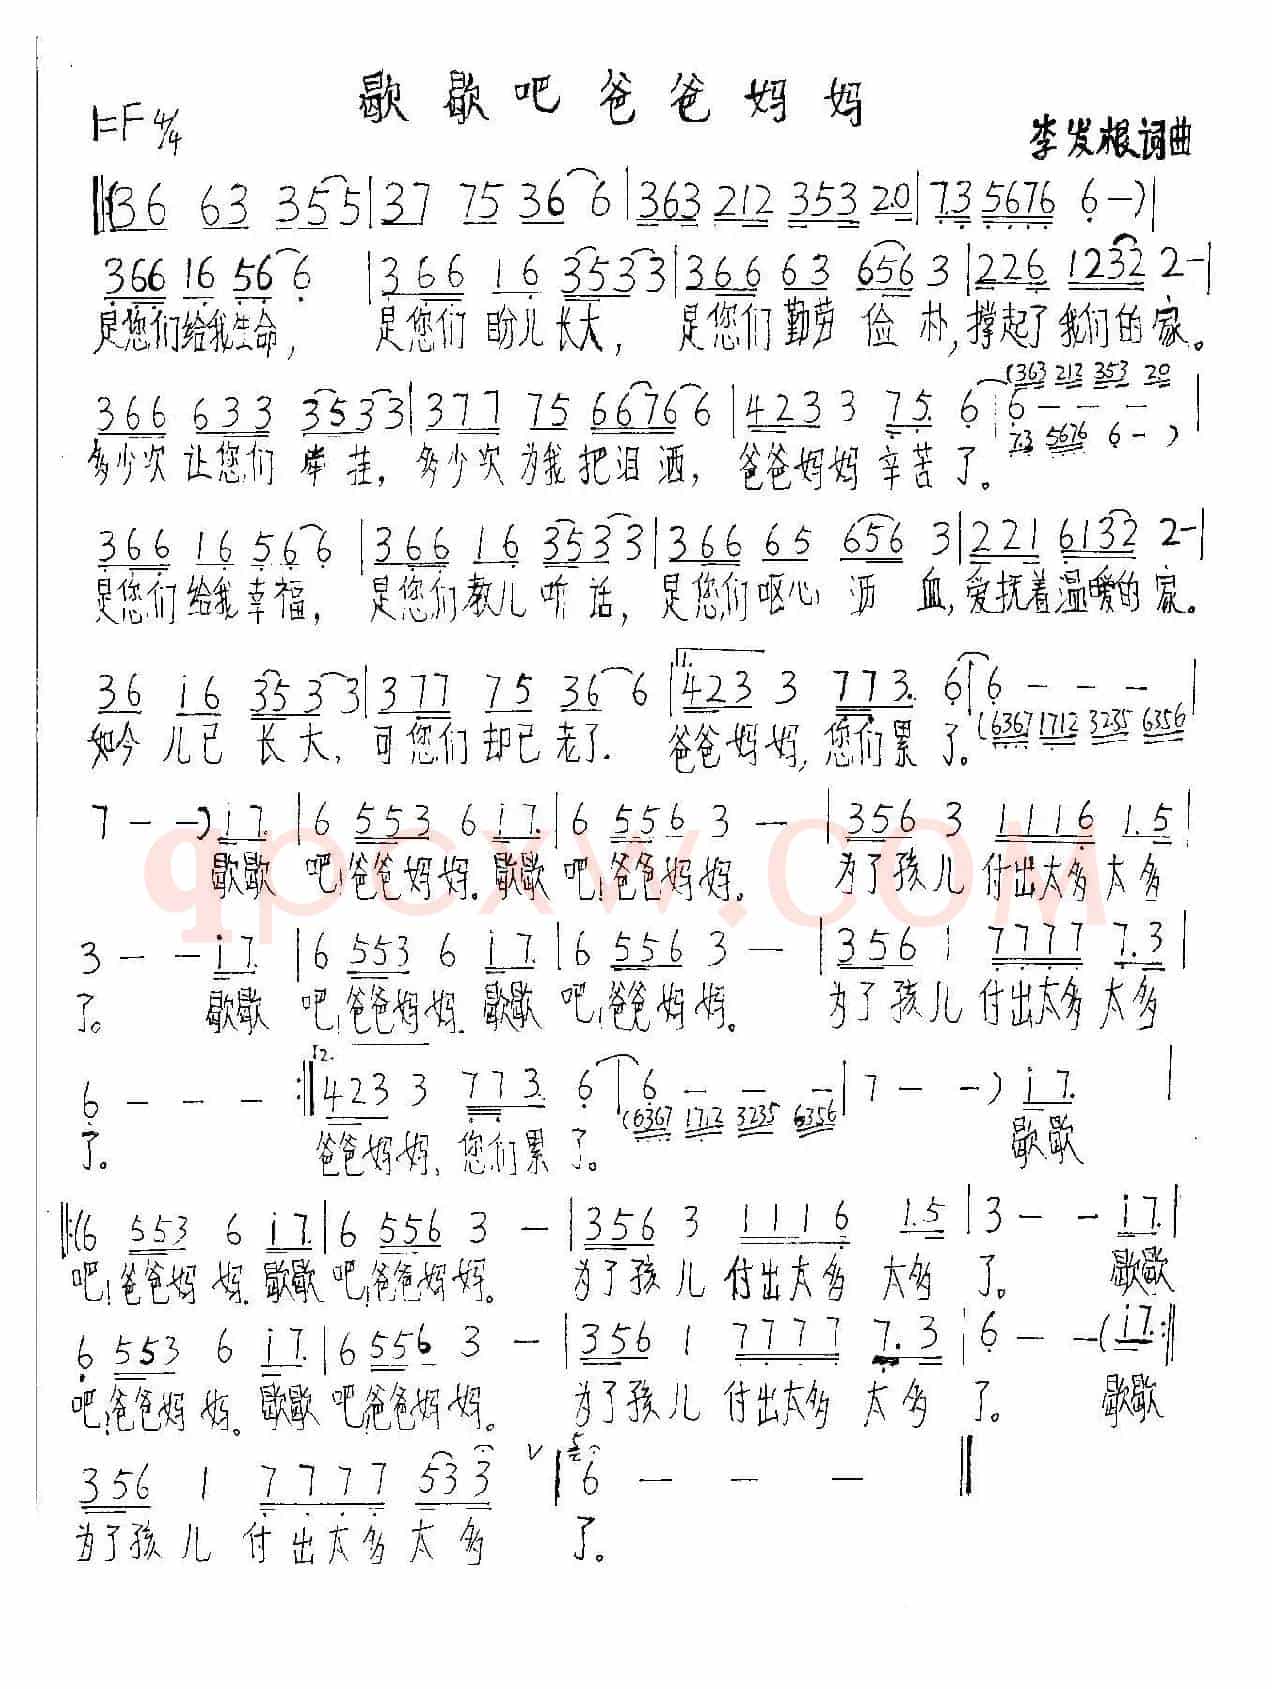 歇歇吧爸爸妈妈
1=F 4/4
李发根词曲
(36 63 3555 | 37 75 36 6 | 363 212 353 20 | 7.3 5676 6 -) |
366 16 56 6 | 366 16 3533 | 366 63 656 3 | 226 1232 2 - |
是您们给我生命， 是您们盼儿长大， 是您们勤劳俭朴，撑起了我们的家。
(363 212 353 20
366 633 3533 | 377 75 6676 6 | 423 3 75. 6 | 6 - - - |
7.3 5676 6 -)
多少次让您们牵挂，多少次为我把泪洒，爸爸妈妈辛苦了。
366 16 56 6 | 366 16 3533 | 366 65 656 3 | 221 6132 2 - |
是您们给我幸福， 是您们教儿听话，是您们呕心沥血，爱抚着温暖的家。
36 i6 3533 | 377 75 36 6 | 1. 423 3 773. 6 | 6 - - -
(6367 1712 3235 6356
如今儿已长大，可您们却已老了. 爸爸妈妈，您们累了。
7 - -) i7. | 6 553 6 i7. | 6 556 3 - | 356 3 1116 1.5 |
歇歇吧！爸爸妈妈.歇歇吧！爸爸妈妈. 为了孩儿付出太多太多
qpcxw.COM
3 - - i7. | 6 553 6 i7. | 6 556 3 - | 356 1 7777 7.3 |
了。 歇歇吧！爸爸妈妈.歇歇吧！爸爸妈妈。 为了孩儿付出太多太多
6 - - - :|| 2. 423 3 773. 6 | 6 - - - | 7 - -) i7. |
(6367 1712 3235 6356
了。 爸爸妈妈，您们累了。 歇歇
||:(6 553 6 i7. | 6 556 3 - | 356 3 1116 1.5 | 3 - - i7. |
吧！爸爸妈妈.歇歇吧！爸爸妈妈。 为了孩儿付出太多太多了。 歇歇
6 553 6 i7. | 6 556 3 - | 356 1 7777 7.3 | 6 - -(i7. :||
吧！爸爸妈妈。歇歇吧爸爸妈妈。 为了孩儿付出太多太多了。 歇歇
356 1 7777 533 V | 6 - - - ||
为了孩儿付出太多太多 了。